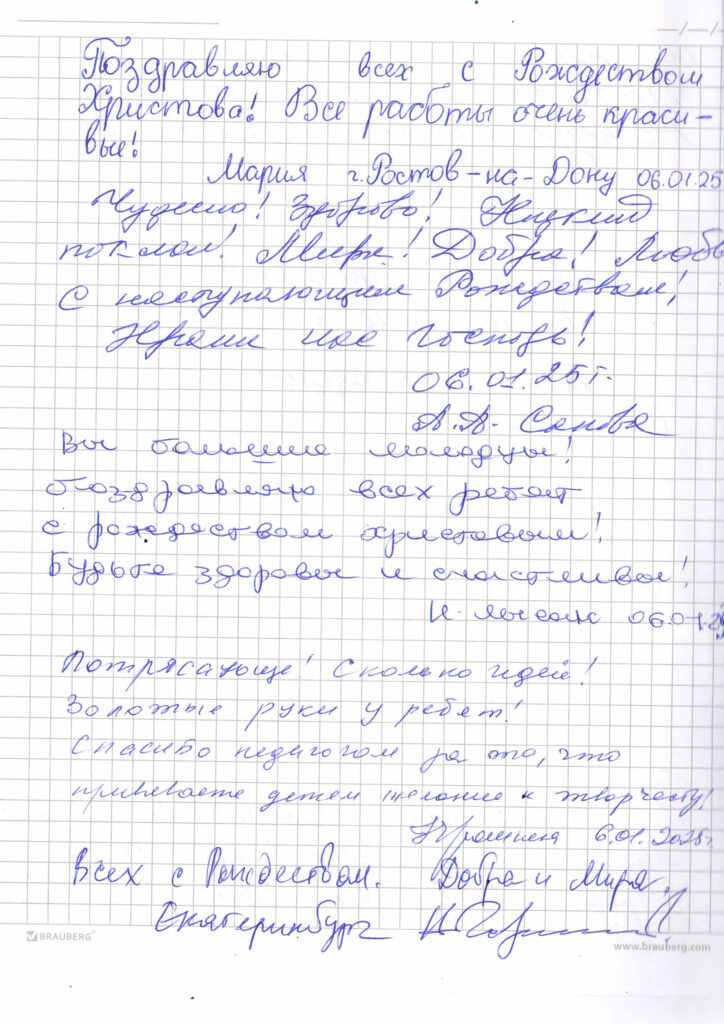 Поздравляю всех с Рождеством
Христова! Все работы очень краси-
вые!
Мария г. Ростов-на-Дону 06.01.25
Чудесно! Здорово! Низкий
поклон! Мира! Добра! Любв
С наступающим Рождеством!
Храни нас Господь!
06.01.25 г.
А.А.
Вы большие молодцы!
Поздравляю всех ребят
с рождеством христовым!
Будьте здоровы и счастливы!
06.01.25
Потрясающе! Сколько идей!
Золотые руки у ребят!
Спасибо педагогам за то, что
прививаете детям желание к творчеству!
6.01.2025г
Всех с Рождеством. Добра и Мира.
Екатеринбург
BRAUBERG®
www.brauberg.com